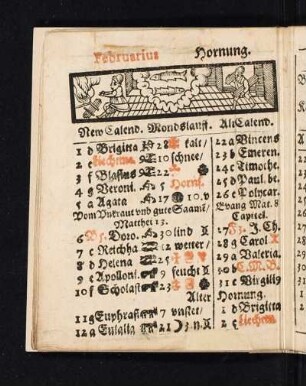 Februarius Hornung.
New Calend. Mondslauff. Alt Calend.
1 d Brigitta 28 kalt/ 22 a Vincens
2 e Liechtm. 10 schnee/ 23 b Emeren.
3 f Blasius 22 24 c Timothe.
4 g Veroni. 5 Horns. 25 d Paul. be.
5 a Agata 17 10. v 26 e Policar.
Vom Vnkraut vnd gute Saamē/ Evang Mat. 8
Matthei 13. Capitel.
6 Doro. 30 lind 27 J. Ch.
7 c Reichha 12 wetter/ 28 g Carol
8 d Helena 25 29 a Valeria.
9 e Apolloni. 9 feucht 30 b
10 f Scholast 23 31 c Virgilij
Alter Hornung.
11 g Euphrasi 7 1 d Brigitta
12 a Eulalia 21 2 e Liechtm.